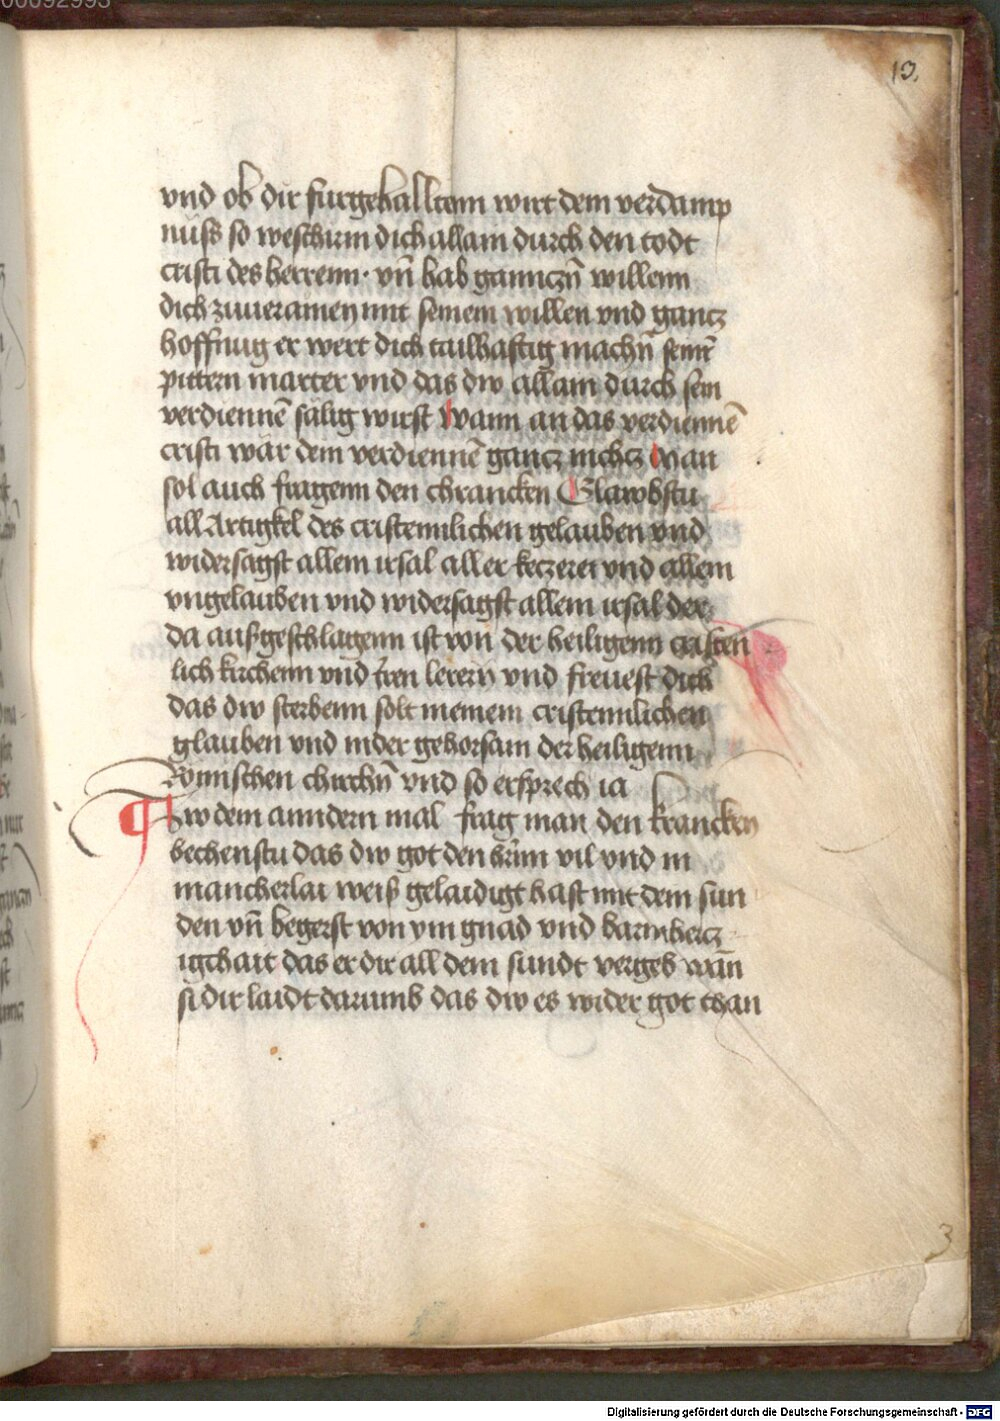 00092993
13.
vnd ob dir furgehalltenn wirt dein verdamp
nüss so weschirm dich allain durch den todt
cristi des herrenn · vn̄ hab ganncz̄n willenn
dich zuueramen mit seinem willen vnd gancz
hoffnug er wert dich tailhafftig mach̄n seinr̄
pittern marter vnd das dw allain durch sein
verdiennē sälig wirst Wann an das verdiennē
cristi wär dein verdiennē gancz nichcz Man
sol auch fragenn den chrancken Glawbstu
all Artigkel des cristennlichen gelauben vnd
widersagst allem irsal aller keczerei vnd allem
vngelauben vnd widersagst allem irsal der
da außgeschlagenn ist von der heiligenn cristen
lich kirchenn vnd iren lerern vnd freuest dich
das dw sterbenn solt in einem cristennlichen
glauben vnd in der gehorsam der heiligenn
Römischen chirch̄n vnd so er sprech ia
Zw dem anndern mal frag man den krancken
bechenstu das dw got den hern̄ vil vnd in
mancherlai weiß gelaidigt hast mit dein sun
den vn̄ begerst von ym gnad vnd barmhercz
igchait das er dir all dein sundt vergeb wan̄
si dir laidt darumb das dw es wider got than
3
Digitalisierung gefördert durch die Deutsche Forschungsgemeinschaft - DFG